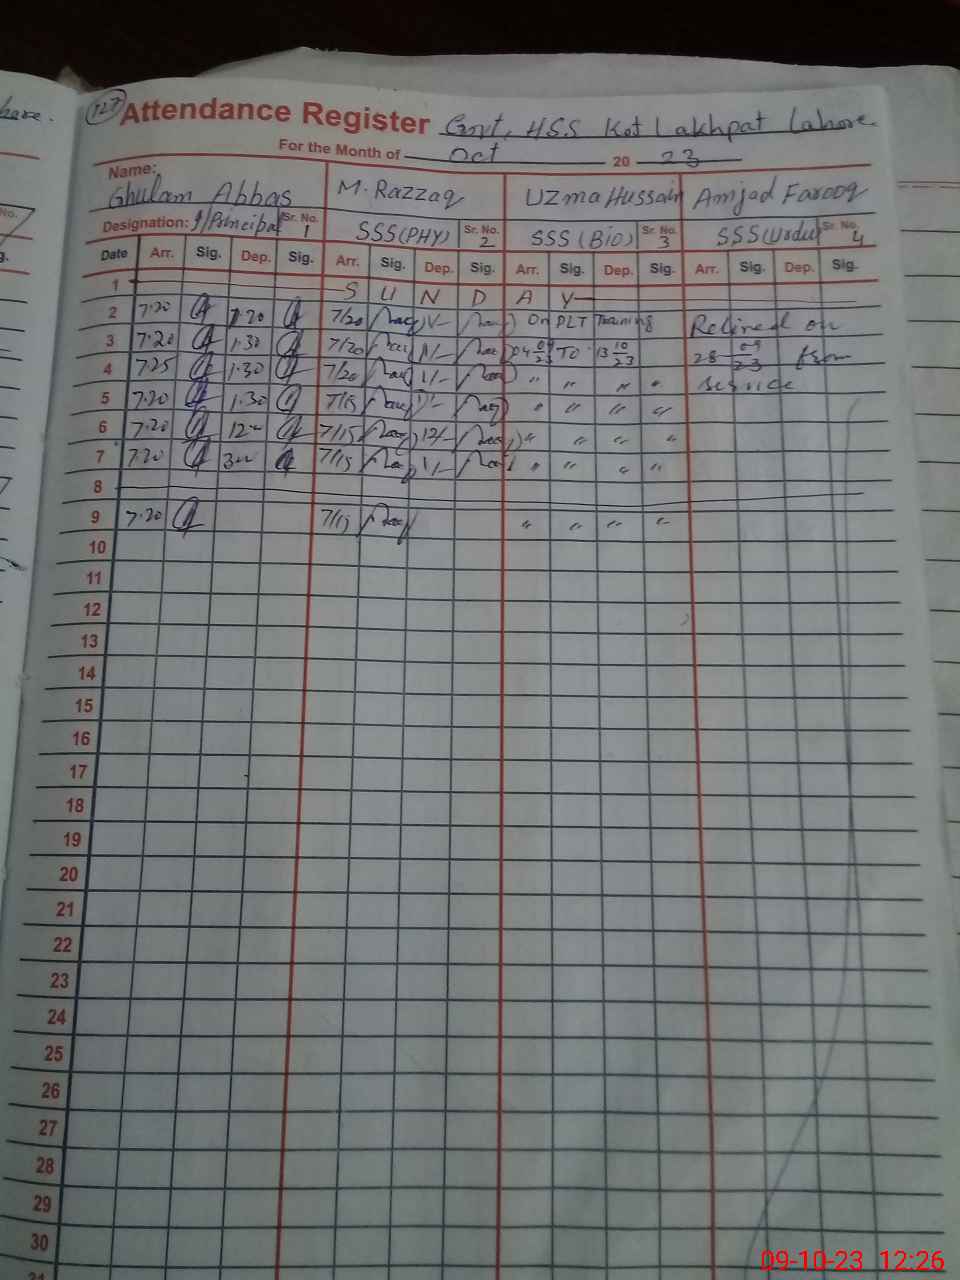 here.
127 Attendance Register Govt. HSS Kot Lakhpat Lahore.
For the Month of Oct 20 23
Name:
Ghulam Abbas M. Razzaq Uzma Hussain Amjad Farooq
Designation: I/Principal Sr. No. 1 SSS (PHY) Sr. No. 2 SSS (Bio) Sr. No. 3 SSS (Urdu) Sr. No. 4
Date Arr. Sig. Dep. Sig. Arr. Sig. Dep. Sig. Arr. Sig. Dep. Sig. Arr. Sig. Dep. Sig.
1 S U N D A Y
2 7.20 1.20 7/20 1/- On PLT Training Retired on
3 7.20 1.30 7/20 1/- 04 09/23 TO 13 10/23 28 09/23 from
4 7.25 1.30 7/20 1/- " " " " service
5 7.20 1.30 7/15 1/- " " " "
6 7.20 12.00 7/15 12/- " " " "
7 7.20 3.00 7/15 1/- " " " "
8
9 7.20 7/15 " " " "
10
11
12
13
14
15
16
17
18
19
20
21
22
23
24
25
26
27
28
29
30
31
09-10-23 12:26